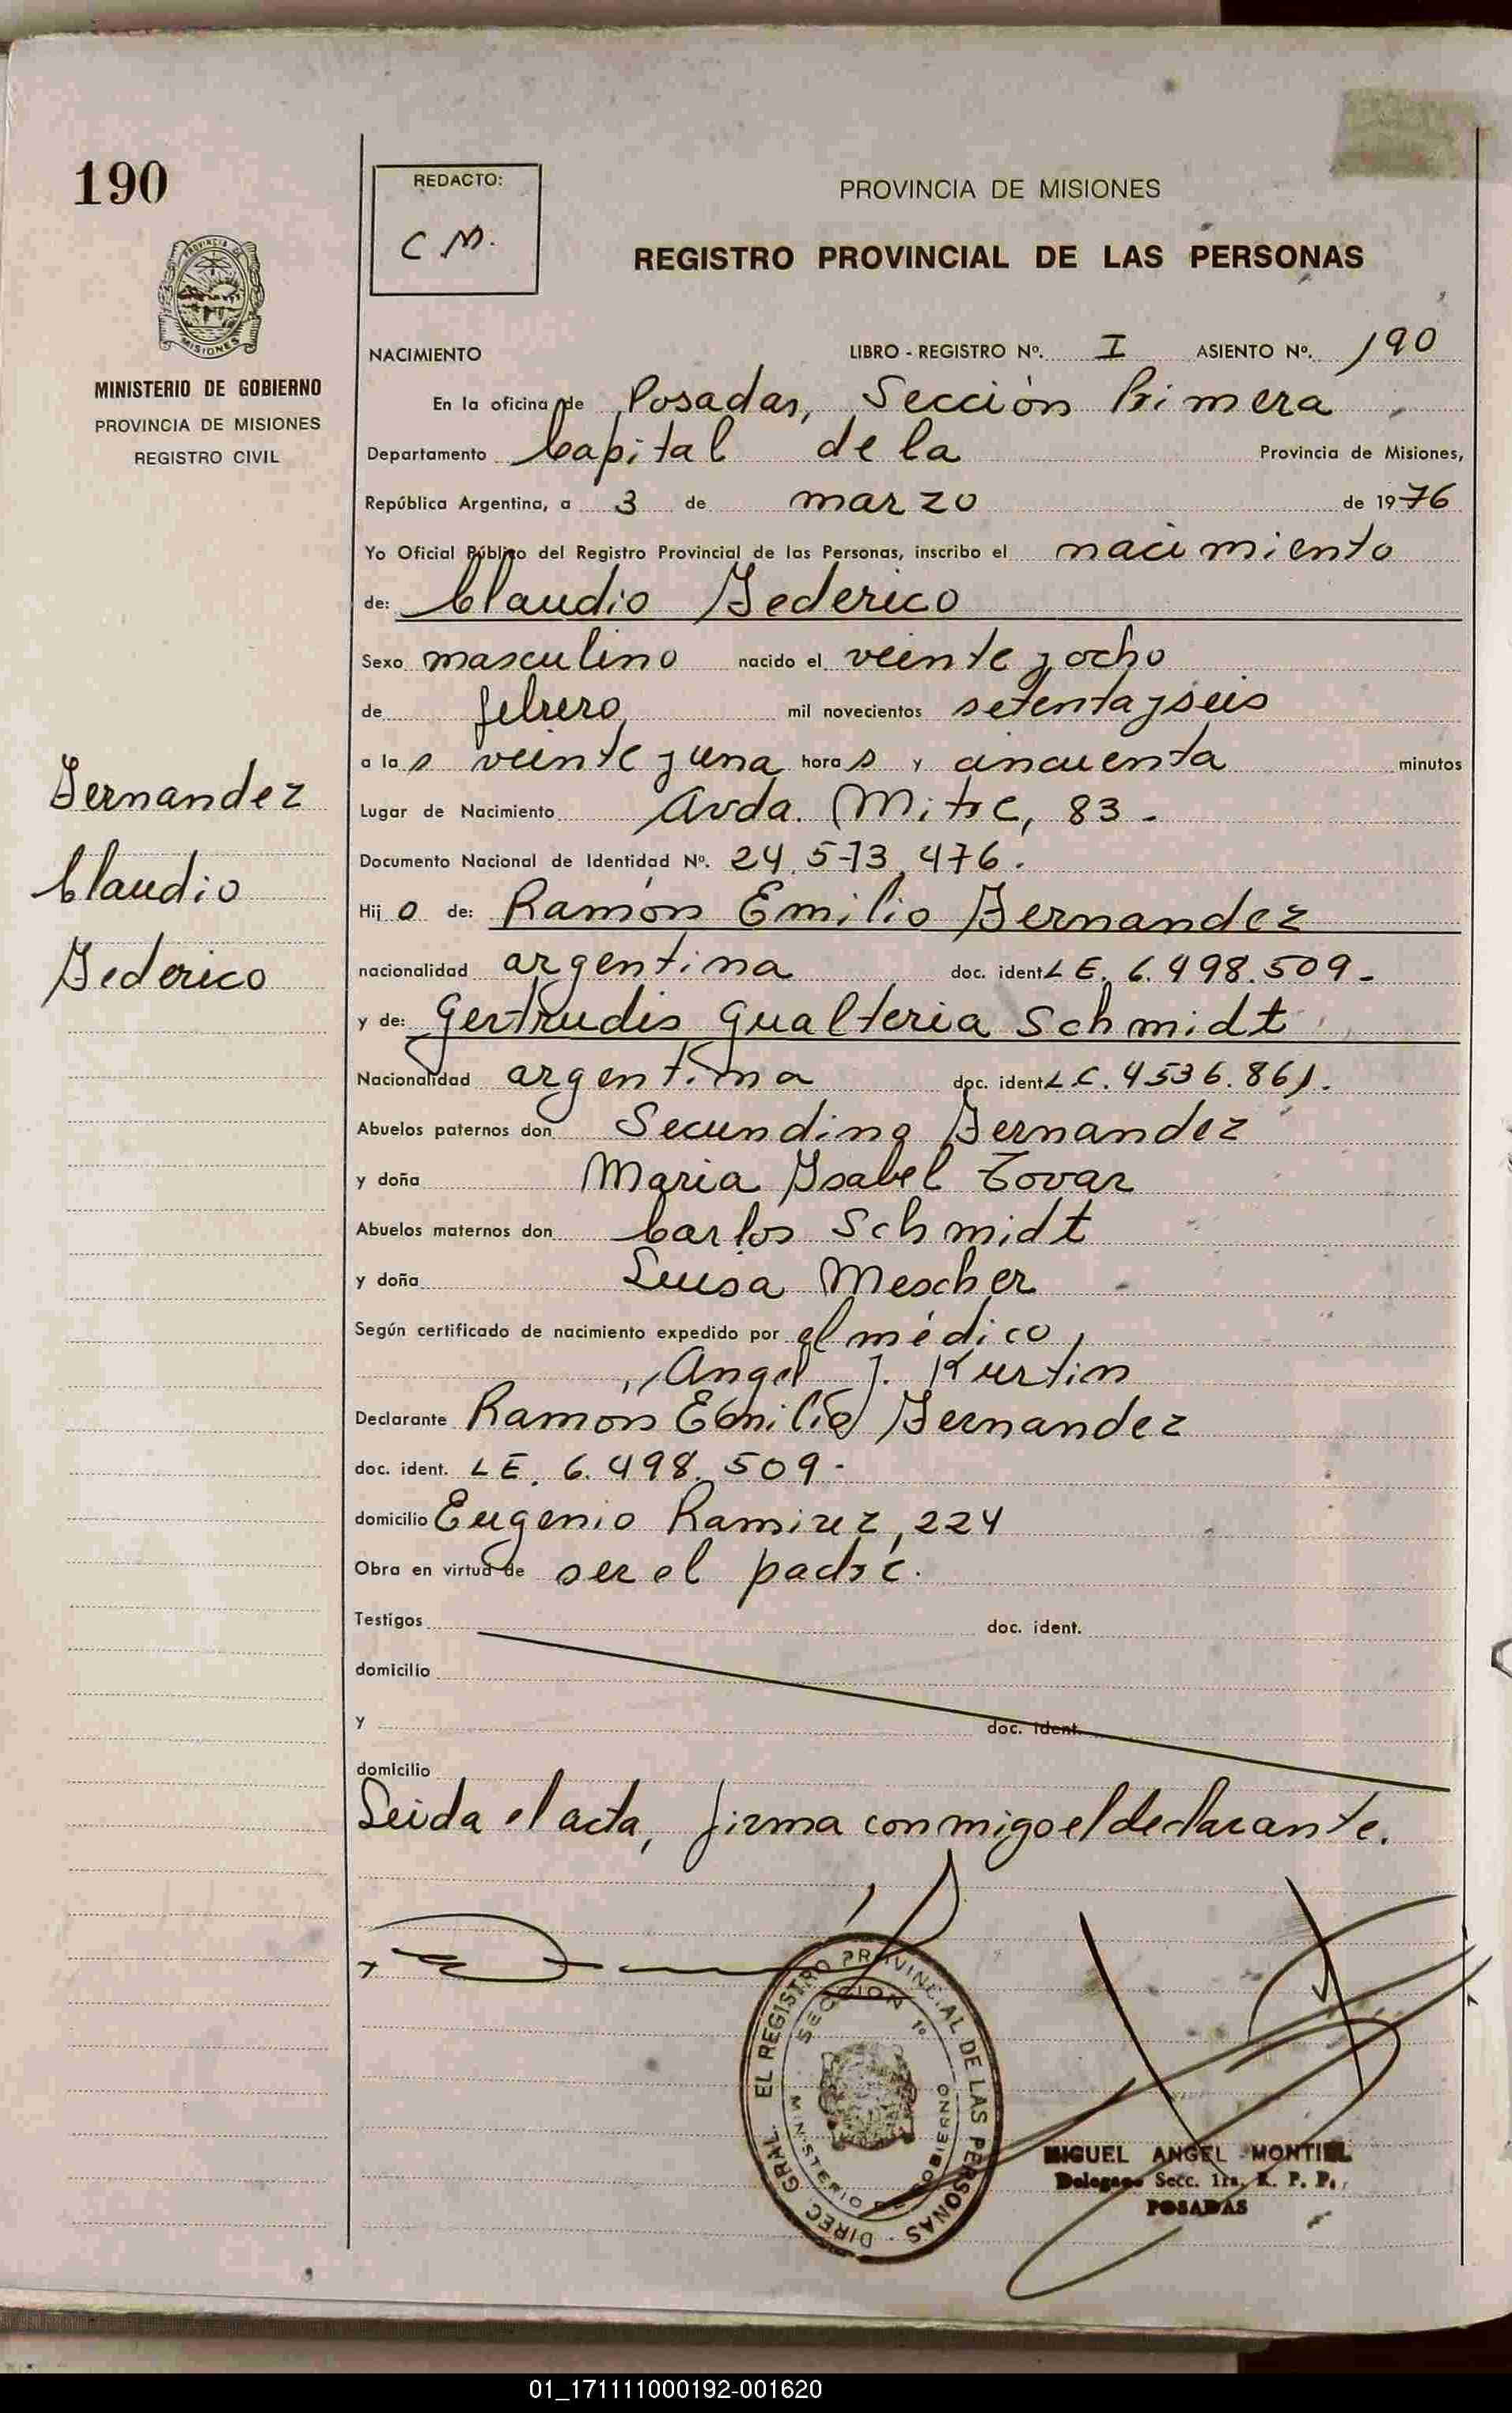 190
PROVINCIA DE
MISIONES
MINISTERIO DE GOBIERNO
PROVINCIA DE MISIONES
REGISTRO CIVIL
Fernandez
Claudio
Federico
REDACTO:
C M.
PROVINCIA DE MISIONES
REGISTRO PROVINCIAL DE LAS PERSONAS
NACIMIENTO LIBRO - REGISTRO Nº. I ASIENTO Nº. 190
En la oficina de Posadas, Sección Primera
Departamento Capital de la Provincia de Misiones,
República Argentina, a 3 de marzo de 1976
Yo Oficial Público del Registro Provincial de las Personas, inscribo el nacimiento
de: Claudio Federico
Sexo masculino nacido el veinte y ocho
de febrero mil novecientos setenta y seis
a las veinte y una horas y cincuenta minutos
Lugar de Nacimiento Avda. Mitre, 83 -
Documento Nacional de Identidad Nº. 24.573.476.
Hijo de: Ramón Emilio Fernandez
nacionalidad argentina doc. ident. LE. 6.498.509-
y de: Gertrudis Gualteria Schmidt
Nacionalidad argentina doc. ident. LC. 4536.861.
Abuelos paternos don Secundino Fernandez
y doña Maria Ysabel Tovar
Abuelos maternos don Carlos Schmidt
y doña Luisa Mescher
Según certificado de nacimiento expedido por el médico,
Angel J. Kurtin
Declarante Ramon Emilio Fernandez
doc. ident. LE. 6.498.509-
domicilio Eugenio Ramirez, 224
Obra en virtud de ser el padre.
Testigos doc. ident.
domicilio
y doc. ident.
domicilio
Leida el acta, firma conmigo el declarante.
DIREC. GRAL. EL REGISTRO PROVINCIAL DE LAS PERSONAS
SECCION 1º
MINISTERIO DE GOBIERNO
MIGUEL ANGEL MONTIEL
Delegado Secc. 1ra. R. P. P.
POSADAS
01_171111000192-001620